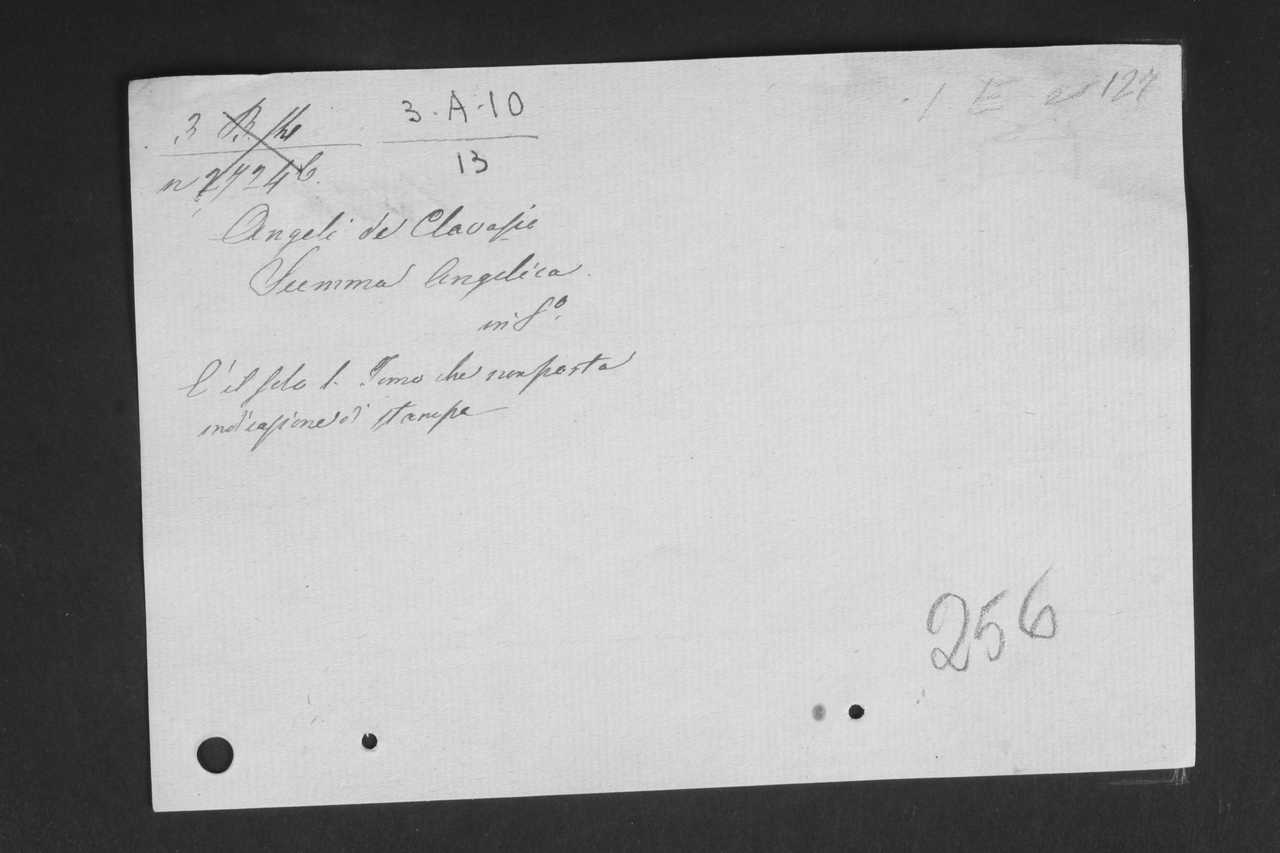 3 B. 14
3-A-10
13
n 2724 b.
127
Angeli de Clavasio
Summa Angelica.
in f.º
C'è il solo 1. Tomo che non porta
indicazione di stampa
256